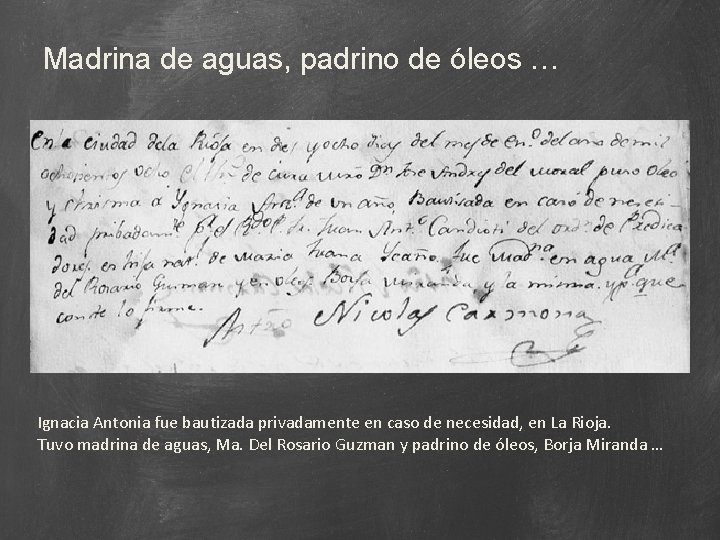 Madrina de aguas, padrino de óleos …
En la ciudad dela Rioja en dies y ocho dias del mes de En.º del año de mil
ochosientos ocho el Then.te de cura Mrô Dn Jose Andres del Moral puso oleo
y chrisma à Ygnacia Ant.ª de un año Bautisada en caso de necesi-
dad pribadam.te p.r el R.do P. Fr. Juan Ant.º Candioti del ord.n de Predica
dores, es hija nat.l de Maria Juana fue Mad.na en agua M.ª
del Rosario Gusman y en oleo Borja Miranda y la misma. y p.ª que
conste lo firmé.
Nicolas Carmona
Ignacia Antonia fue bautizada privadamente en caso de necesidad, en La Rioja.
Tuvo madrina de aguas, Ma. Del Rosario Guzman y padrino de óleos, Borja Miranda …